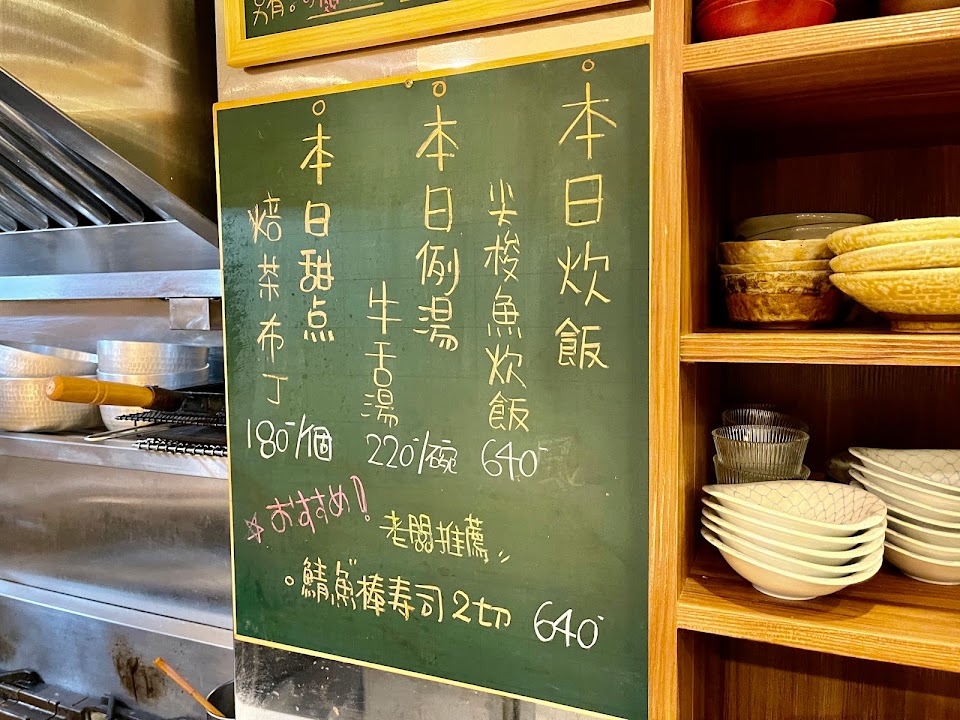 本日炊飯
尖梭魚炊飯
640
本日例湯
牛舌湯
220/碗
本日甜点
焙茶布丁
180/個
☆おすすめ!
老闆推薦
鯖魚棒寿司2切 640